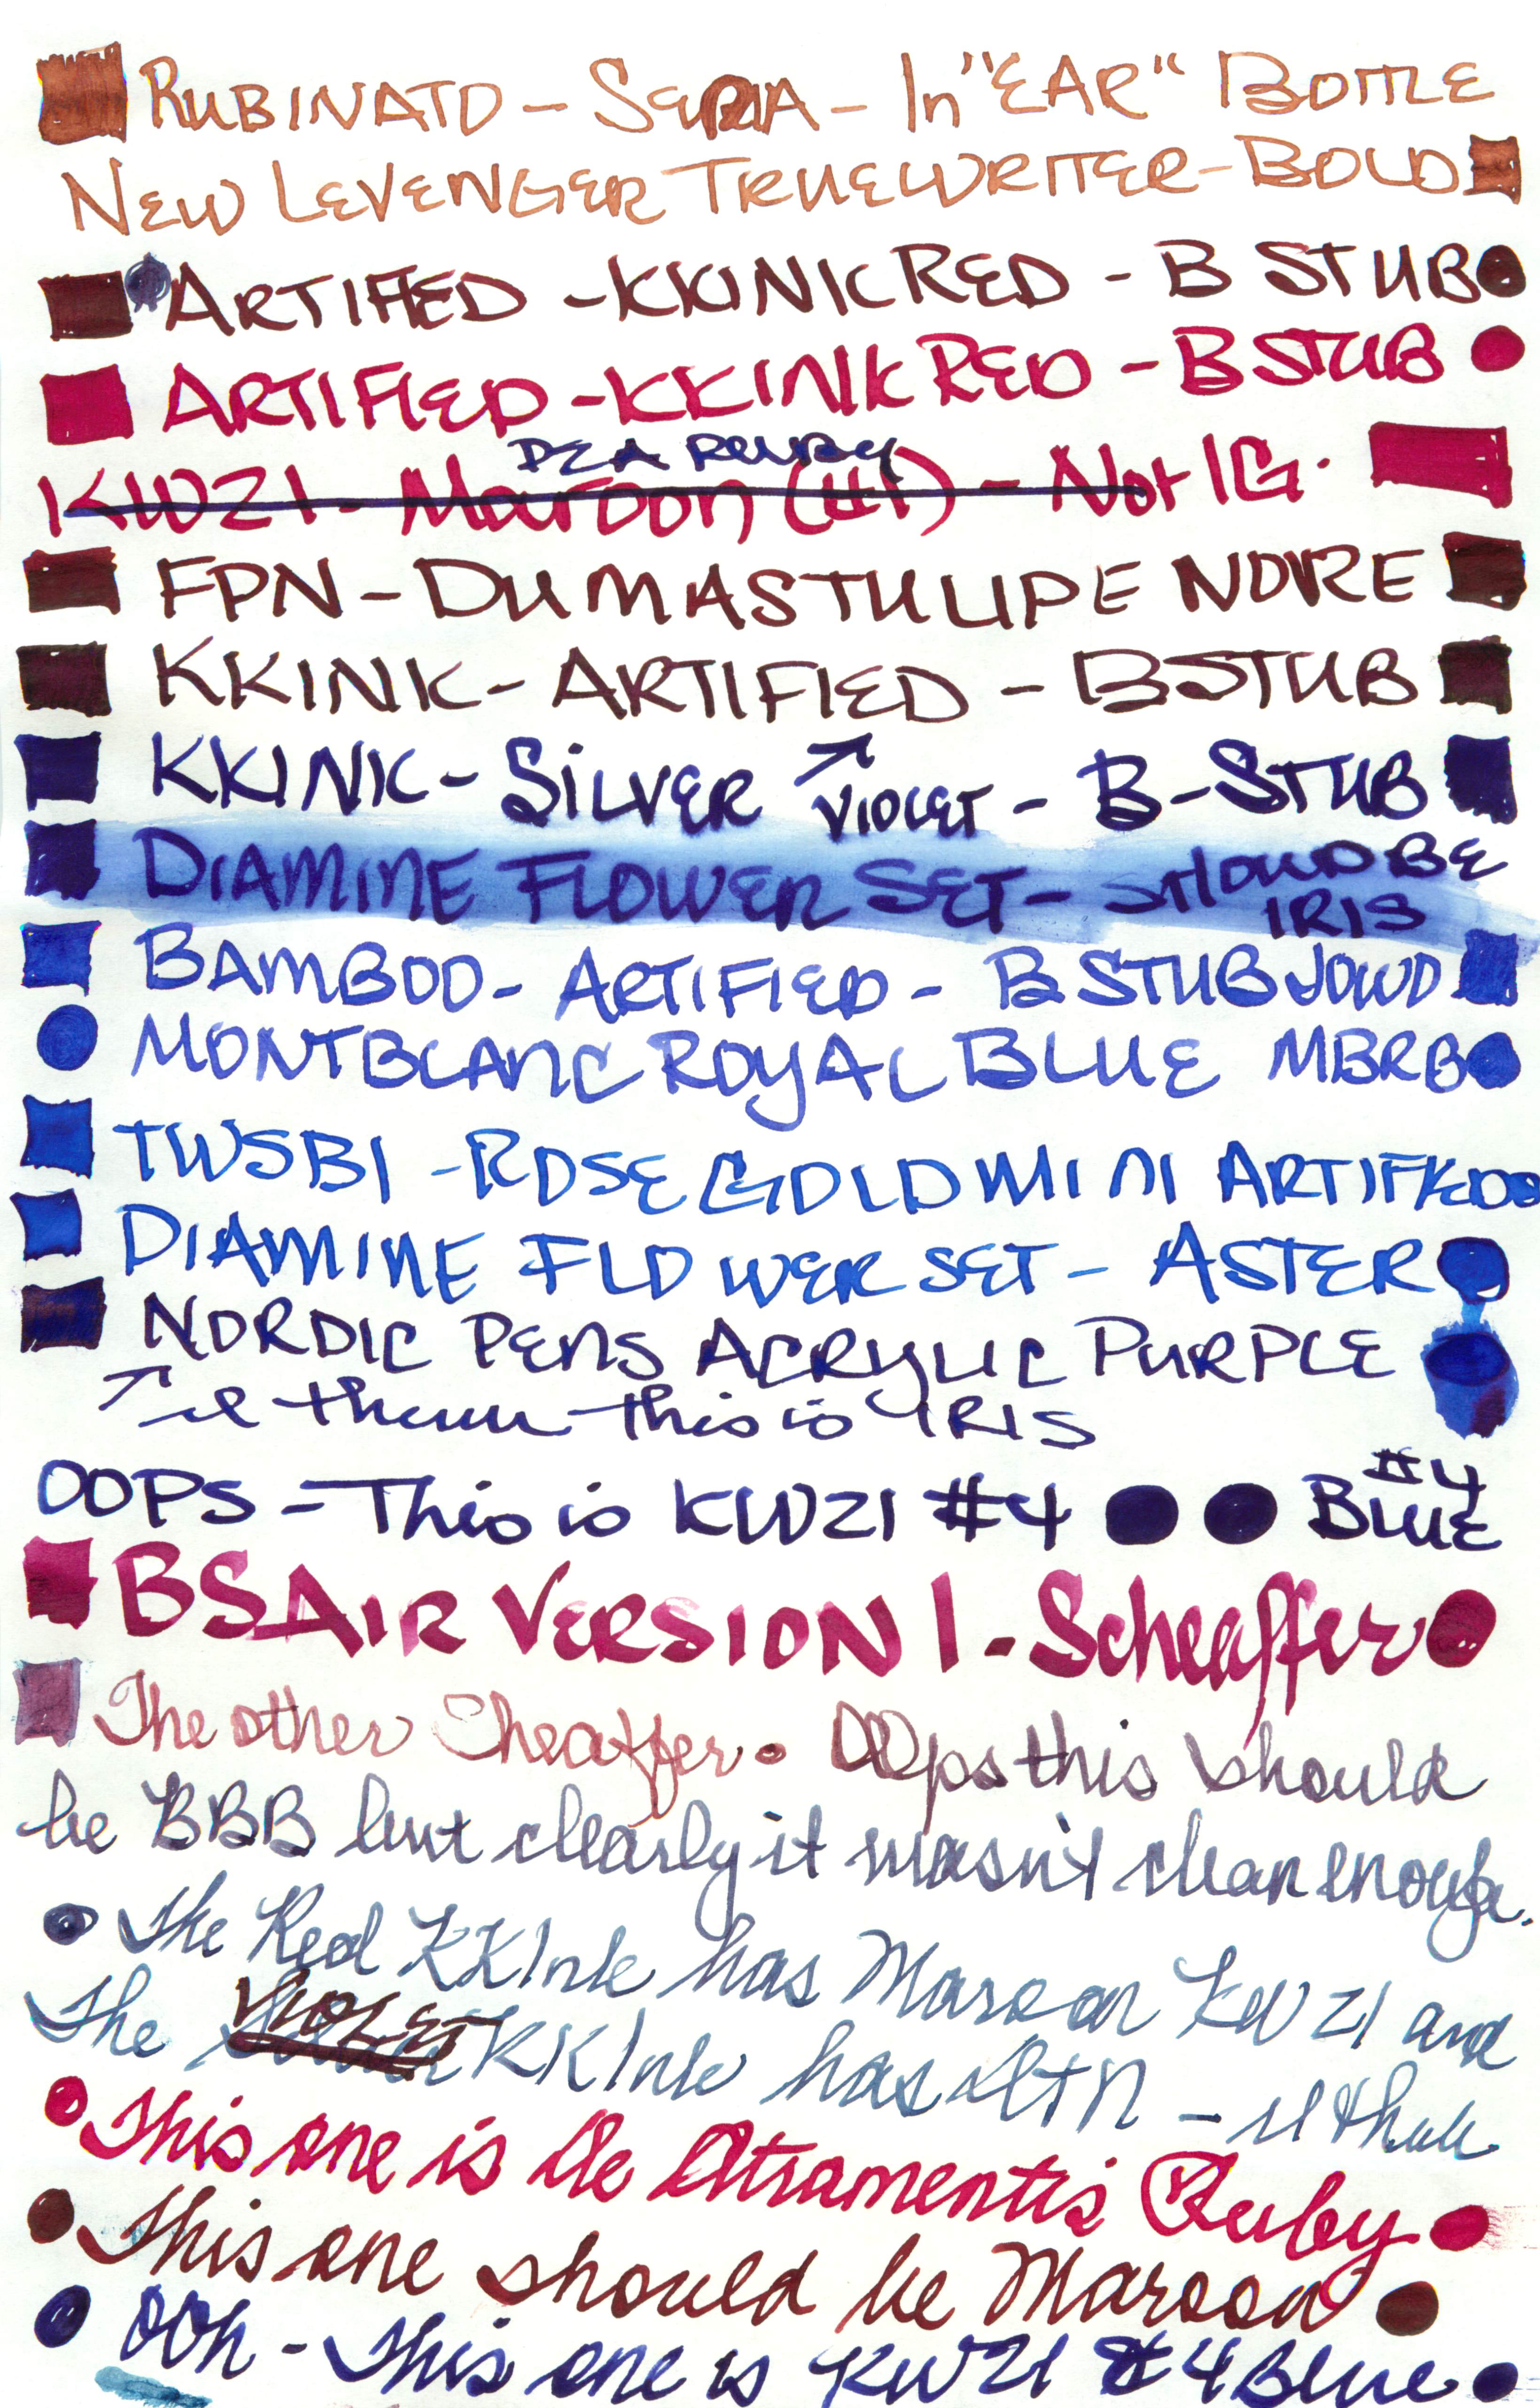 RUBINATO - SEPIA - In "EAR" BOTTLE
NEW LEVENGER TRUEWRITER - BOLD
ARTIFIED - KKINK RED - B STUB
ARTIFIED - KKINK RED - B STUB
DEA RUBY
KWZI - Maroon (#1) - Not IG.
FPN - DUMAS TULIPE NOIRE
KKINK - ARTIFIED - B STUB
KKINK - SILVER VIOLET - B - STUB
DIAMINE FLOWER SET - SHOULD BE IRIS
BAMBOO - ARTIFIED - B STUB JOWO
MONTBLANC ROYAL BLUE MBRB
TWSBI - ROSE GOLD MINI ARTIFIED
DIAMINE FLOWER SET - ASTER
NORDIC PENS ACRYLIC PURPLE
this is IRIS
OOPS - This is KWZI #4 #4 BLUE
BSAIR VERSION 1 - Scheaffer
The other Sheaffer. OOps this should
be BBB but clearly it wasn't clean enough.
The Red KKInk has Maroon KWZI and
The VIOLET KKInk has DTN - I think
This one is De Atramentis Ruby
This one should be Maroon
Ooh - This one is KWZI #4 Blue